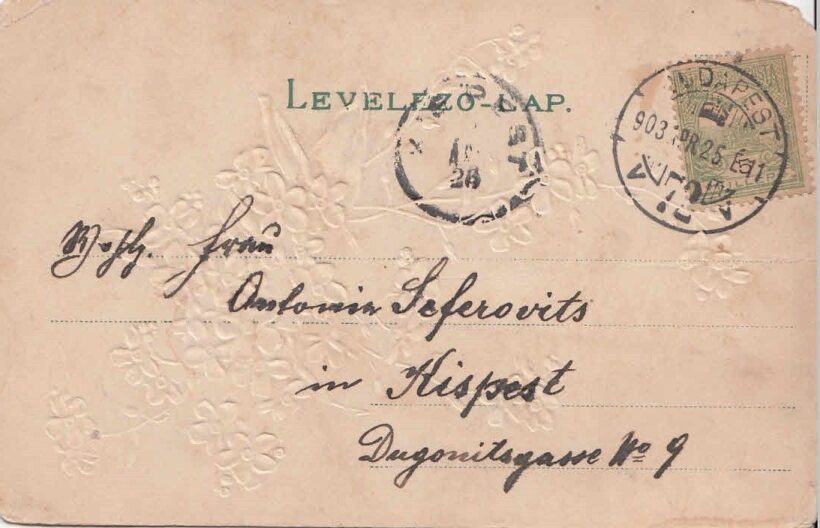 LEVELEZŐ-LAP.
BUDAPEST
903 APR 25
KISPEST
26
Wohl. Frau
Antonia Seferovits
in Kispest
Dugonitsgasse No 9